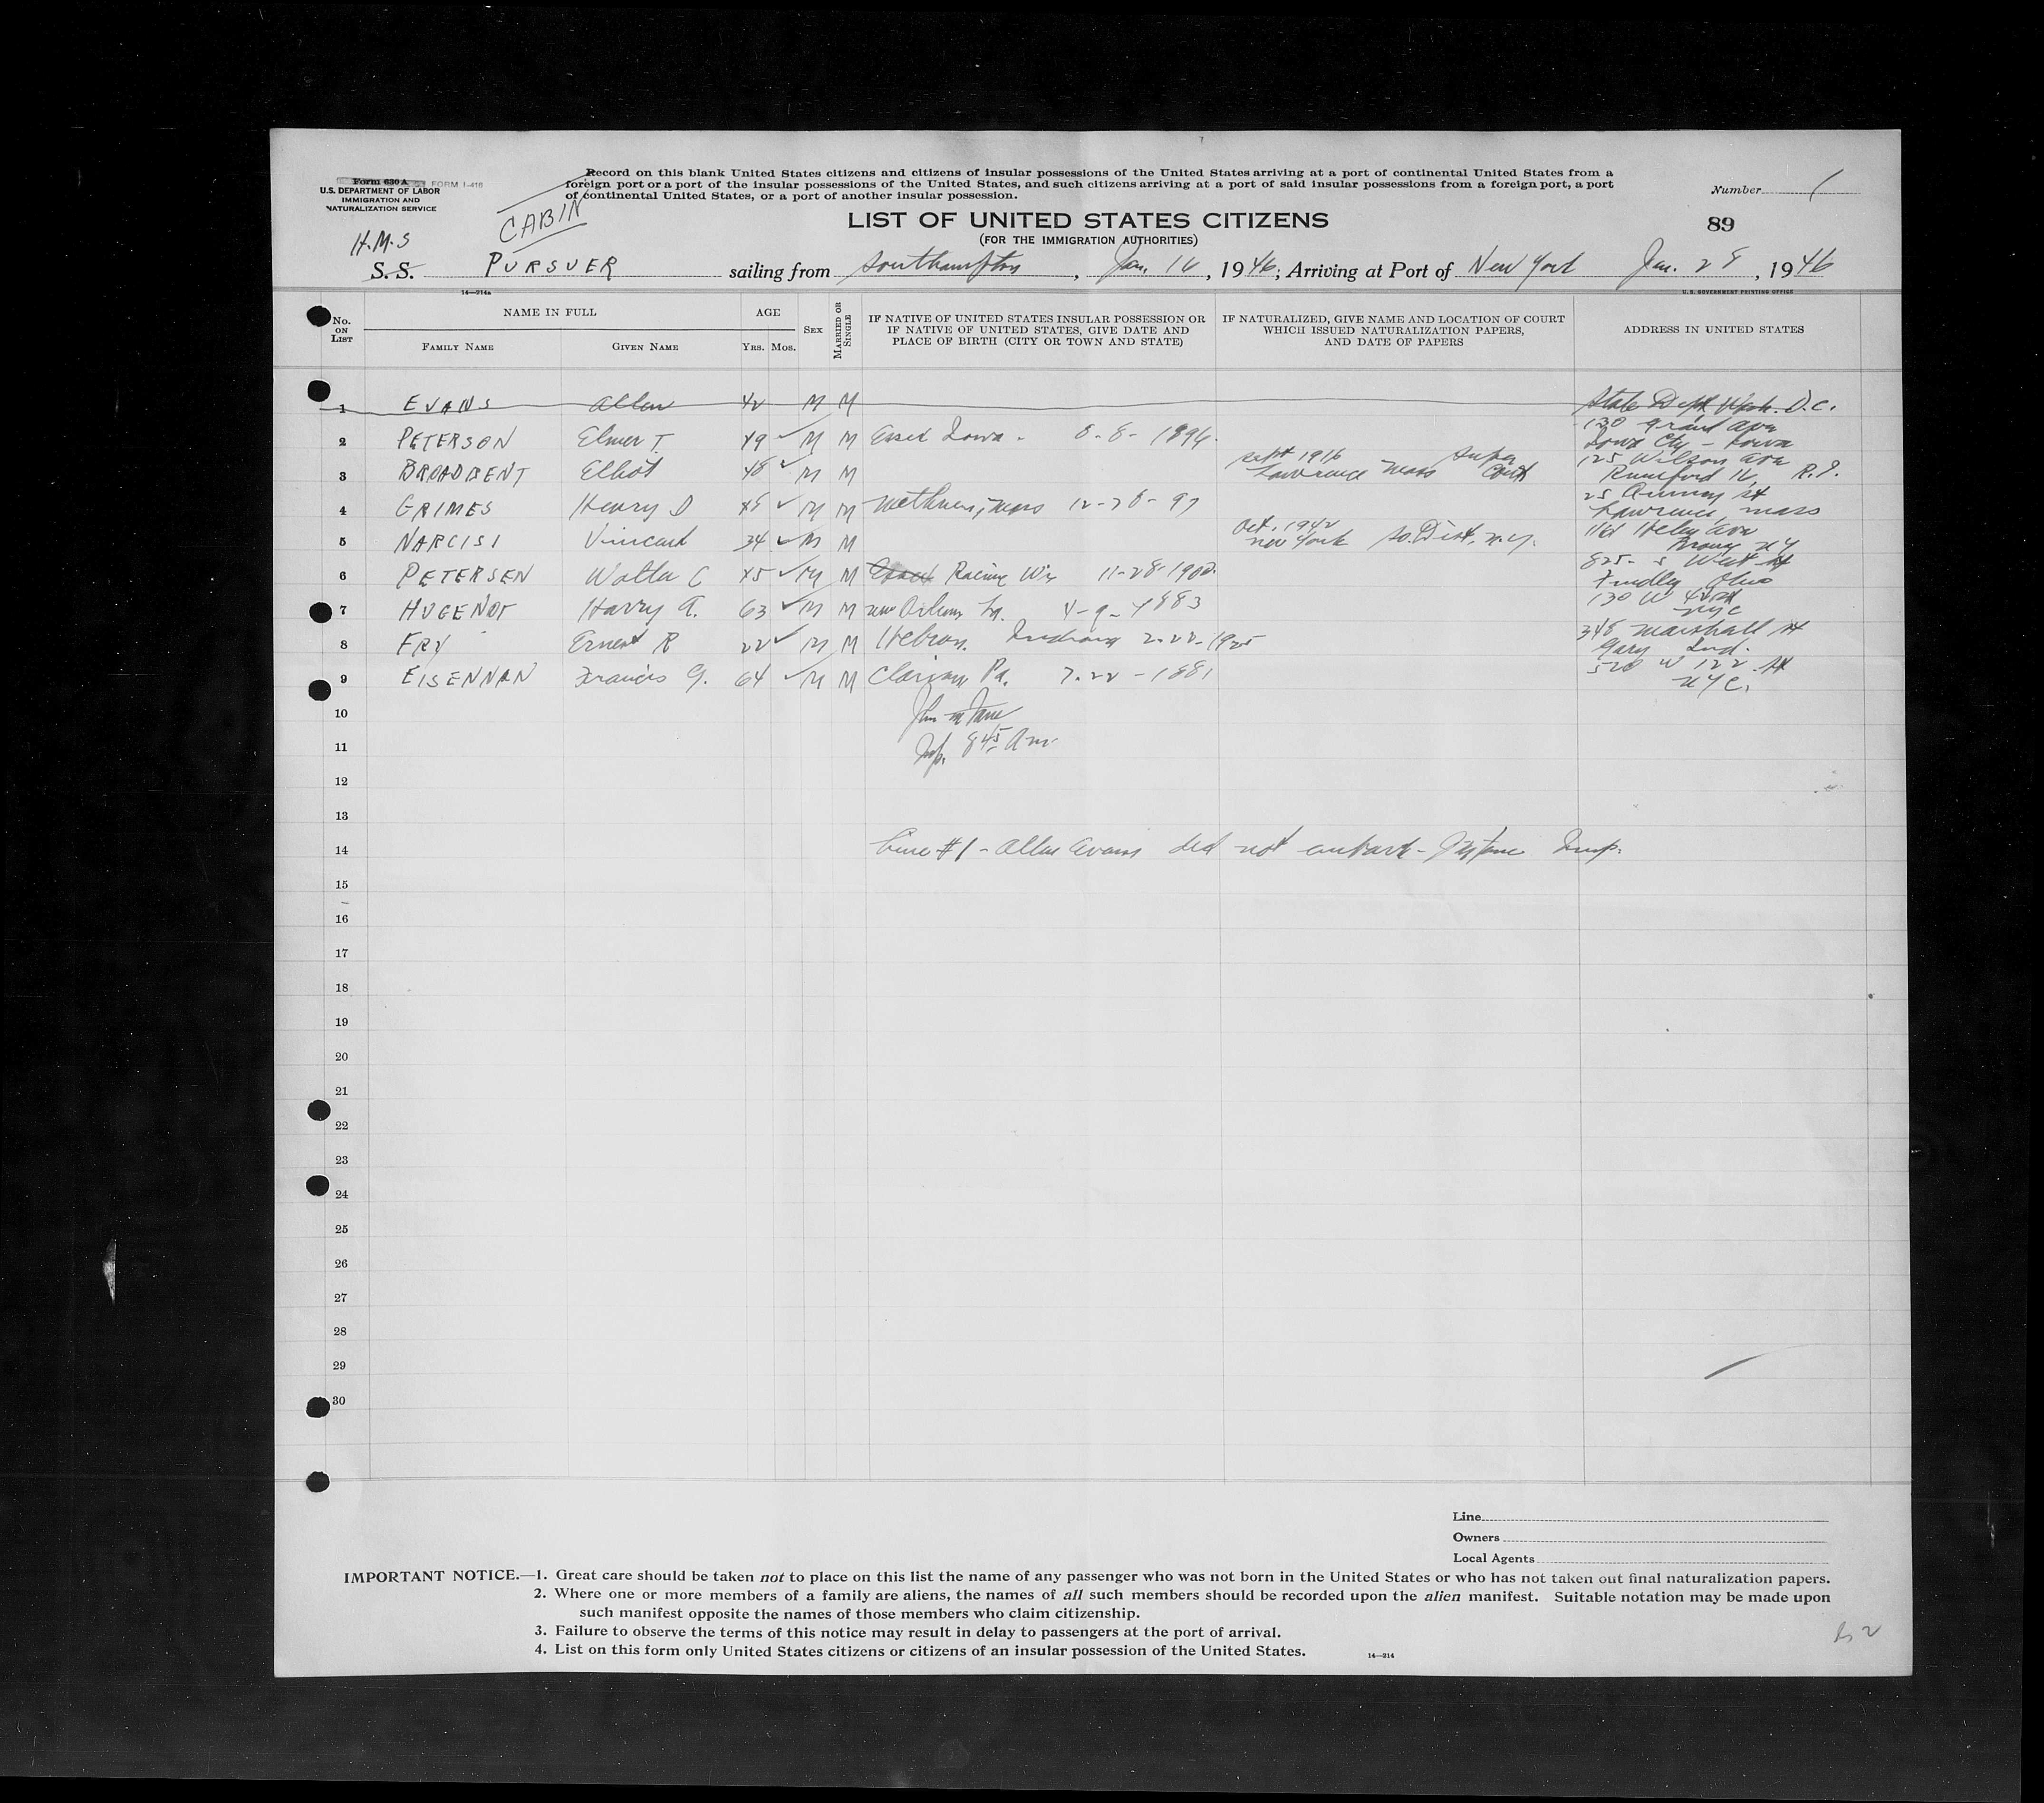 Form 630 A
FORM I-416
U.S. DEPARTMENT OF LABOR
IMMIGRATION AND
NATURALIZATION SERVICE
Record on this blank United States citizens and citizens of insular possessions of the United States arriving at a port of continental United States from a
foreign port or a port of the insular possessions of the United States, and such citizens arriving at a port of said insular possessions from a foreign port, a port
of continental United States, or a port of another insular possession.
Number 1
CABIN
LIST OF UNITED STATES CITIZENS
89
(FOR THE IMMIGRATION AUTHORITIES)
H.M.S
S.S. PURSUER sailing from Southampton, Jan. 16, 1946; Arriving at Port of New York Jan. 28, 1946
14—214a
U. S. GOVERNMENT PRINTING OFFICE
No. ON LIST
NAME IN FULL
FAMILY NAME
GIVEN NAME
AGE
YRS. MOS.
SEX
MARRIED OR SINGLE
IF NATIVE OF UNITED STATES INSULAR POSSESSION OR
IF NATIVE OF UNITED STATES, GIVE DATE AND
PLACE OF BIRTH (CITY OR TOWN AND STATE)
IF NATURALIZED, GIVE NAME AND LOCATION OF COURT
WHICH ISSUED NATURALIZATION PAPERS,
AND DATE OF PAPERS
ADDRESS IN UNITED STATES
1 EVANS Allen 42 M M State Dept Wash. D.C.
2 PETERSON Elmer T. 49 M M Essex Iowa - 8-8-1896 130 Grand Ave
Iowa Cty - Iowa
3 BROADBENT Elliot 48 M M Sept 1916 Super
Lawrence Mass Court 125 Wilson Ave
Rumford 16, R.I.
4 GRIMES Henry D 48 M M Methuen, Mass 12-28-97 25 St
Lawrence, Mass
5 NARCISI Vincent 34 M M Oct. 1942
New York So. Dist. N.Y. Ave
Bronx NY
6 PETERSEN Walter C 45 M M Racine Wis 11-28-1900 825 - S West St
Findley Ohio
7 HUGENOT Harry A. 63 M M New Orleans La. 4-9-1883 130 W
NYC
8 FRY Ernest R 22 M M Hebron Indiana 2-22-1925 348 Marshall St
Gary Ind.
9 EISENNAN Francis G. 64 M M Clarion Pa. 7-22-1881 520 W 122 St
NYC.
10
Insp. 8 45 Am
11
12
13
14 Line #1 - Allen Evans did not embark - Insp.
15
16
17
18
19
20
21
22
23
24
25
26
27
28
29
30
Line
Owners
Local Agents
IMPORTANT NOTICE.—1. Great care should be taken not to place on this list the name of any passenger who was not born in the United States or who has not taken out final naturalization papers.
2. Where one or more members of a family are aliens, the names of all such members should be recorded upon the alien manifest. Suitable notation may be made upon
such manifest opposite the names of those members who claim citizenship.
3. Failure to observe the terms of this notice may result in delay to passengers at the port of arrival.
4. List on this form only United States citizens or citizens of an insular possession of the United States.
14—214